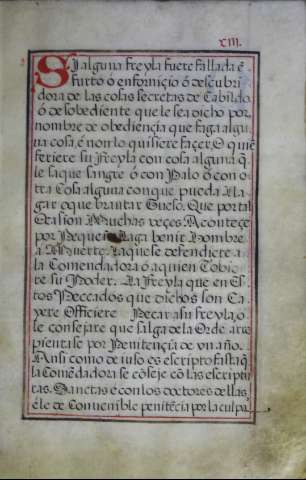 XIII.
Si alguna freyla fuere fallada ẽ
furto o enfornicio ó descubri
dora de las cosas secretas de Cabildo
ó desobediente que lesea dicho por
nombre de obediençia que faga algu
na cosa, é non lo quisiere façer. O quie
feriere su freyla con cosa alguna q̃
le saque sangre ó con Palo ó con o
tra Cosa alguna conque pueda lla
gar o que brantar Gueso. Que por tal
Ocasion Muchas veçes Aconteçe
por Pequeña Llaga benir Hombre
a Muerte. Laque se defendiere a
la Comendadora ó aquien Tobie
re su Poder. La Freyla que en Es
tos Peccados que dichos son Ca
yere Officiere Pecar asu freyla, o
le consejare que salga de la Ordẽ arre
pientase por Penitençia de vn año.
Ansi como de iuso es escripto fasta q̃
la Comẽdadora se cõseje cõ las escriptu
ras. Sanctas e con los doctores dellas,
é le de Conuenible penitẽçia por la culpa